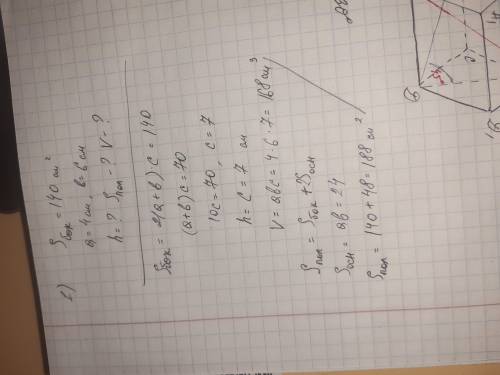 b) Sбок = 140 см²
a = 4 см, b = 6 см
h = ? Sпол - ? V - ?
Sбок = 2(a+b)c = 140
(a+b)c = 70
10c = 70, c = 7
h = c = 7 см
V = abc = 4·6·7 = 168 см³
Sпол = Sбок + 2Sосн
Sосн = ab = 24
Sпол = 140 + 48 = 188 см²